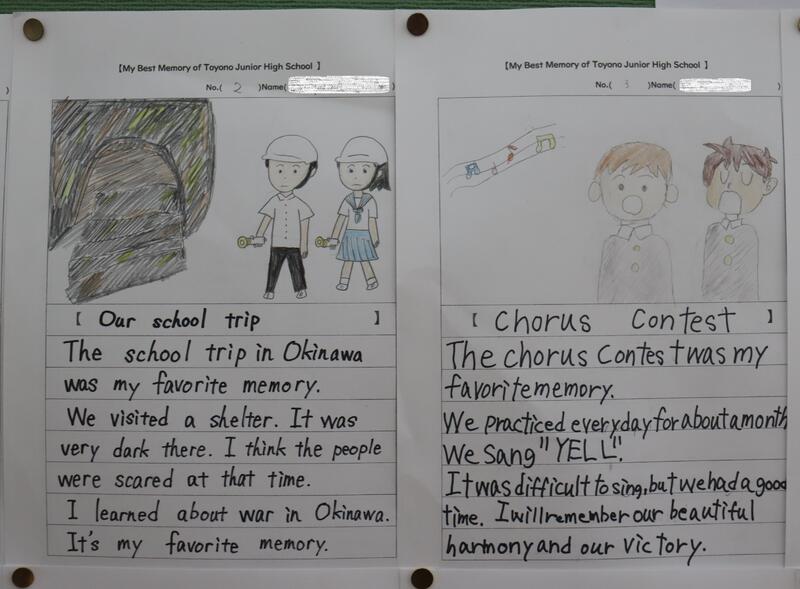 【My Best Memory of Toyono Junior High School 】
No.( 2 )Name(
【 Our school trip 】
The school trip in Okinawa
was my favorite memory.
We visited a shelter. It was
very dark there. I think the people
were scared at that time.
I learned about war in Okinawa.
It's my favorite memory.
【My Best Memory of Toyono Junior High School 】
No.( 3 )Name( )
【 Chorus Contest 】
The chorus Contest was my
favorite memory.
We practiced everyday for about a month
We Sang "YELL".
It was difficult to sing, but we had a good
time. I will remember our beautiful
harmony and our victory.